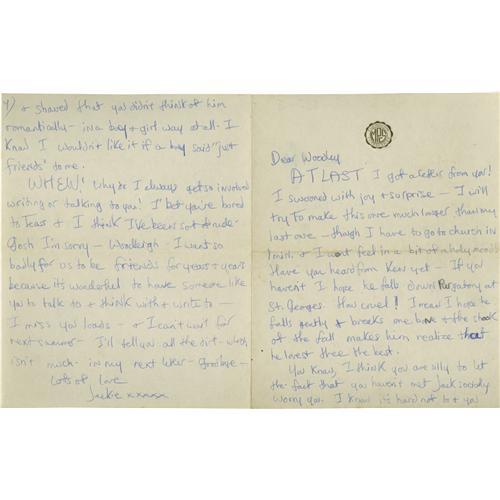 4) + showed that you didn't think of him
romantically – in a boy + girl way at all. I
know I wouldn't like it if a boy said "just
friends" to me.
WHEW! Why do I always get so involved
writing or talking to you! I bet you're bored
to tears + I think I've been sort of rude.
Gosh I'm sorry – Woodleigh – I want so
badly for us to be friends for years + years
because it's wonderful to have someone like
you to talk to + think with + write to –
I miss you loads – + I can't wait for
next summer – I'll tell you all the dirt – which
isn't much – in my next letter – Goodbye –
Lots of love
Jackie xxxxx
MPS
Dear Woodley
AT LAST I got a letter from you!
I swooned with joy + surprise – I will
try to make this one much longer than my
last one – though I have to go to church in
1 min. + I won't feel in a bit of a holy mood
Have you heard from Ken yet – If you
haven't I hope he falls down Purgatory at
St. Georges. How cruel! I mean I hope he
falls gently + breaks one bone + the shock
of the fall makes him realize that
he loves thee the best.
You know, I think you are silly to let
the fact that you haven't met Jack socially
worry you. I know it's hard not to + you